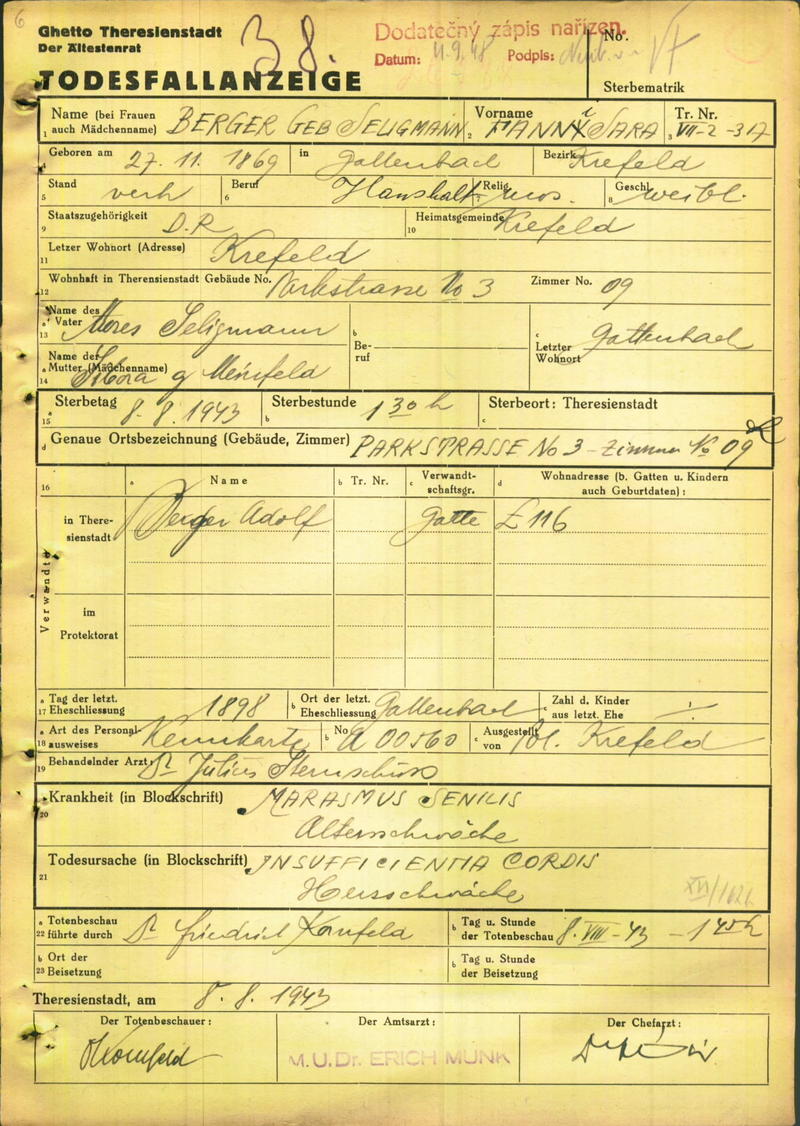 6
Ghetto Theresienstadt
Der Ältestenrat
38.
Dodatečný zápis nařízen.
Datum: 4.9.48 Podpis:
No.
TODESFALLANZEIGE
Sterbematrik
1 Name (bei Frauen auch Mädchenname) BERGER GEB SELIGMANN
2 Vorname FANNY SARA
3 Tr. Nr. VII-2-317
4 Geboren am 27. 11. 1869 in Gallenbach Bezirk Krefeld
5 Stand verh 6 Beruf Haushalt 7 Relig. mos. 8 Geschl. weibl.
9 Staatszugehörigkeit D.R 10 Heimatsgemeinde Krefeld
11 Letzer Wohnort (Adresse) Krefeld
12 Wohnhaft in Theresienstadt Gebäude No. Parkstrasse No 3 Zimmer No. 09
13 a Name des Vater Mores Seligmann b Beruf c Letzter Wohnort Gattenbach
14 a Name der Mutter (Mädchenname)
15 a Sterbetag 8. 8. 1943 b Sterbestunde 1 30 h c Sterbeort: Theresienstadt
d Genaue Ortsbezeichnung (Gebäude, Zimmer) PARKSTRASSE No 3 - Zimmer No 09
16 a Name b Tr. Nr. c Verwandtschaftsgr. d Wohnadresse (b. Gatten u. Kindern auch Geburtdaten):
Verwandte
in Theresienstadt Berger Adolf Gatte L 116
im Protektorat
17 a Tag der letzt. Eheschliessung 1898 b Ort der letzt. Eheschliessung Gallenbach c Zahl d. Kinder aus letzt. Ehe
18 a Art des Personalausweises Kennkarte b No A 00560 c Ausgestellt von Pol. Krefeld
19 Behandelnder Arzt: Dr Julius Sternschuss
20 Krankheit (in Blockschrift) MARASMUS SENILIS
Altersschwäche
21 Todesursache (in Blockschrift) INSUFFICIENTIA CORDIS
Herzschwäche
22 a Totenbeschau führte durch Dr Friedrich Kornfeld b Tag u. Stunde der Totenbeschau 8. VIII - 43 -
23 b Ort der Beisetzung b Tag u. Stunde der Beisetzung
Theresienstadt, am 8. 8. 1943
Der Totenbeschauer: Der Amtsarzt: Der Chefarzt:
Kornfeld M.U.Dr. ERICH MUNK